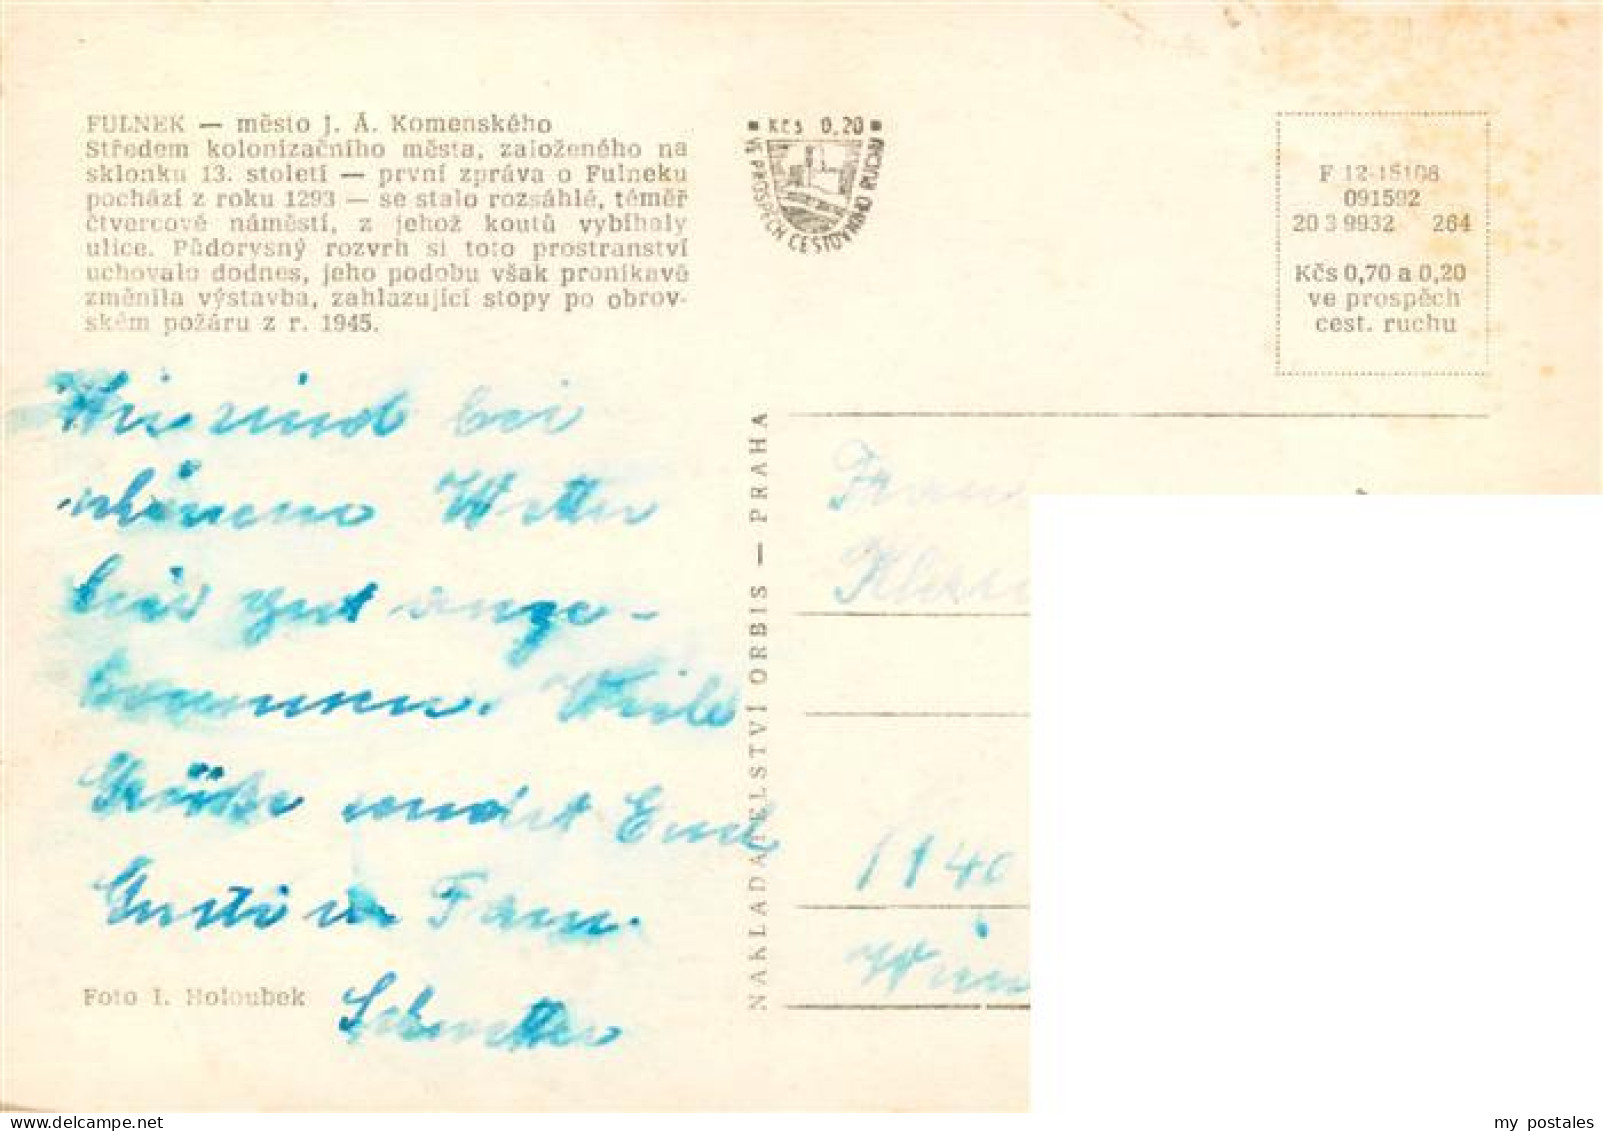 FULNEK — město J. A. Komenského
Středem kolonizačního města, založeného na
sklonku 13. století — první zpráva o Fulneku
pochází z roku 1293 — se stalo rozsáhlé, téměř
čtvercové náměstí, z jehož koutů vybíhaly
ulice. Půdorysný rozvrh si toto prostranství
uchovalo dodnes, jeho podobu však pronikavě
změnila výstavba, zahlazující stopy po obrov-
ském požáru z r. 1945.
Kčs 0,20
VE PROSPĚCH CESTOVNÍHO RUCHU
F 12-15108
091592
20 3 9932 264
Kčs 0,70 a 0,20
ve prospěch
cest. ruchu
Wir sind bei
schönem Wetter
hier gut ange-
kommen. Viele
Grüße sendet Euch
Gusti u Fam.
Schwetter
Foto I. Holoubek
NAKLADATELSTVÍ ORBIS — PRAHA
1140
Wien
my postales